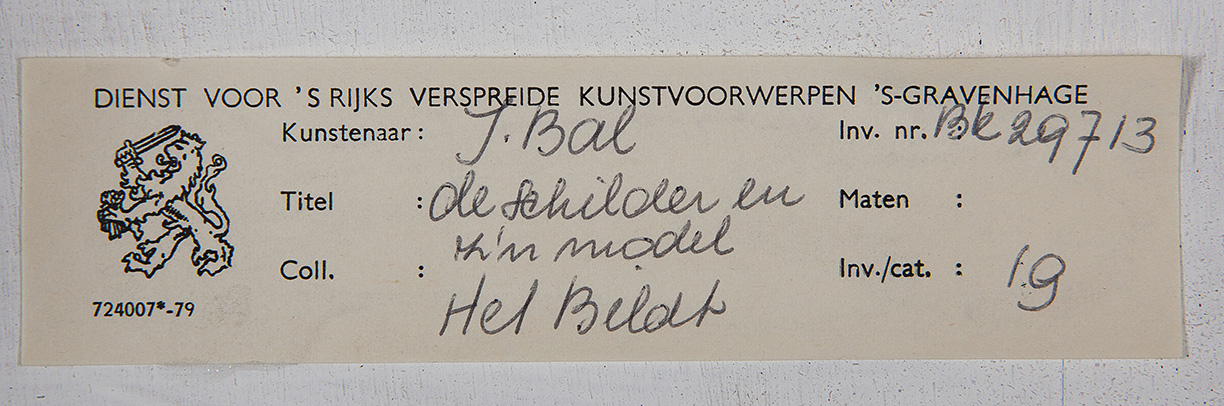 DIENST VOOR 'S RIJKS VERSPREIDE KUNSTVOORWERPEN 'S-GRAVENHAGE
Kunstenaar: J. Bal Inv. nr.: Bk 29713
Titel : de schilder en Maten :
z'n model
Coll. : Het Bildt Inv./cat. : 19
724007*-79